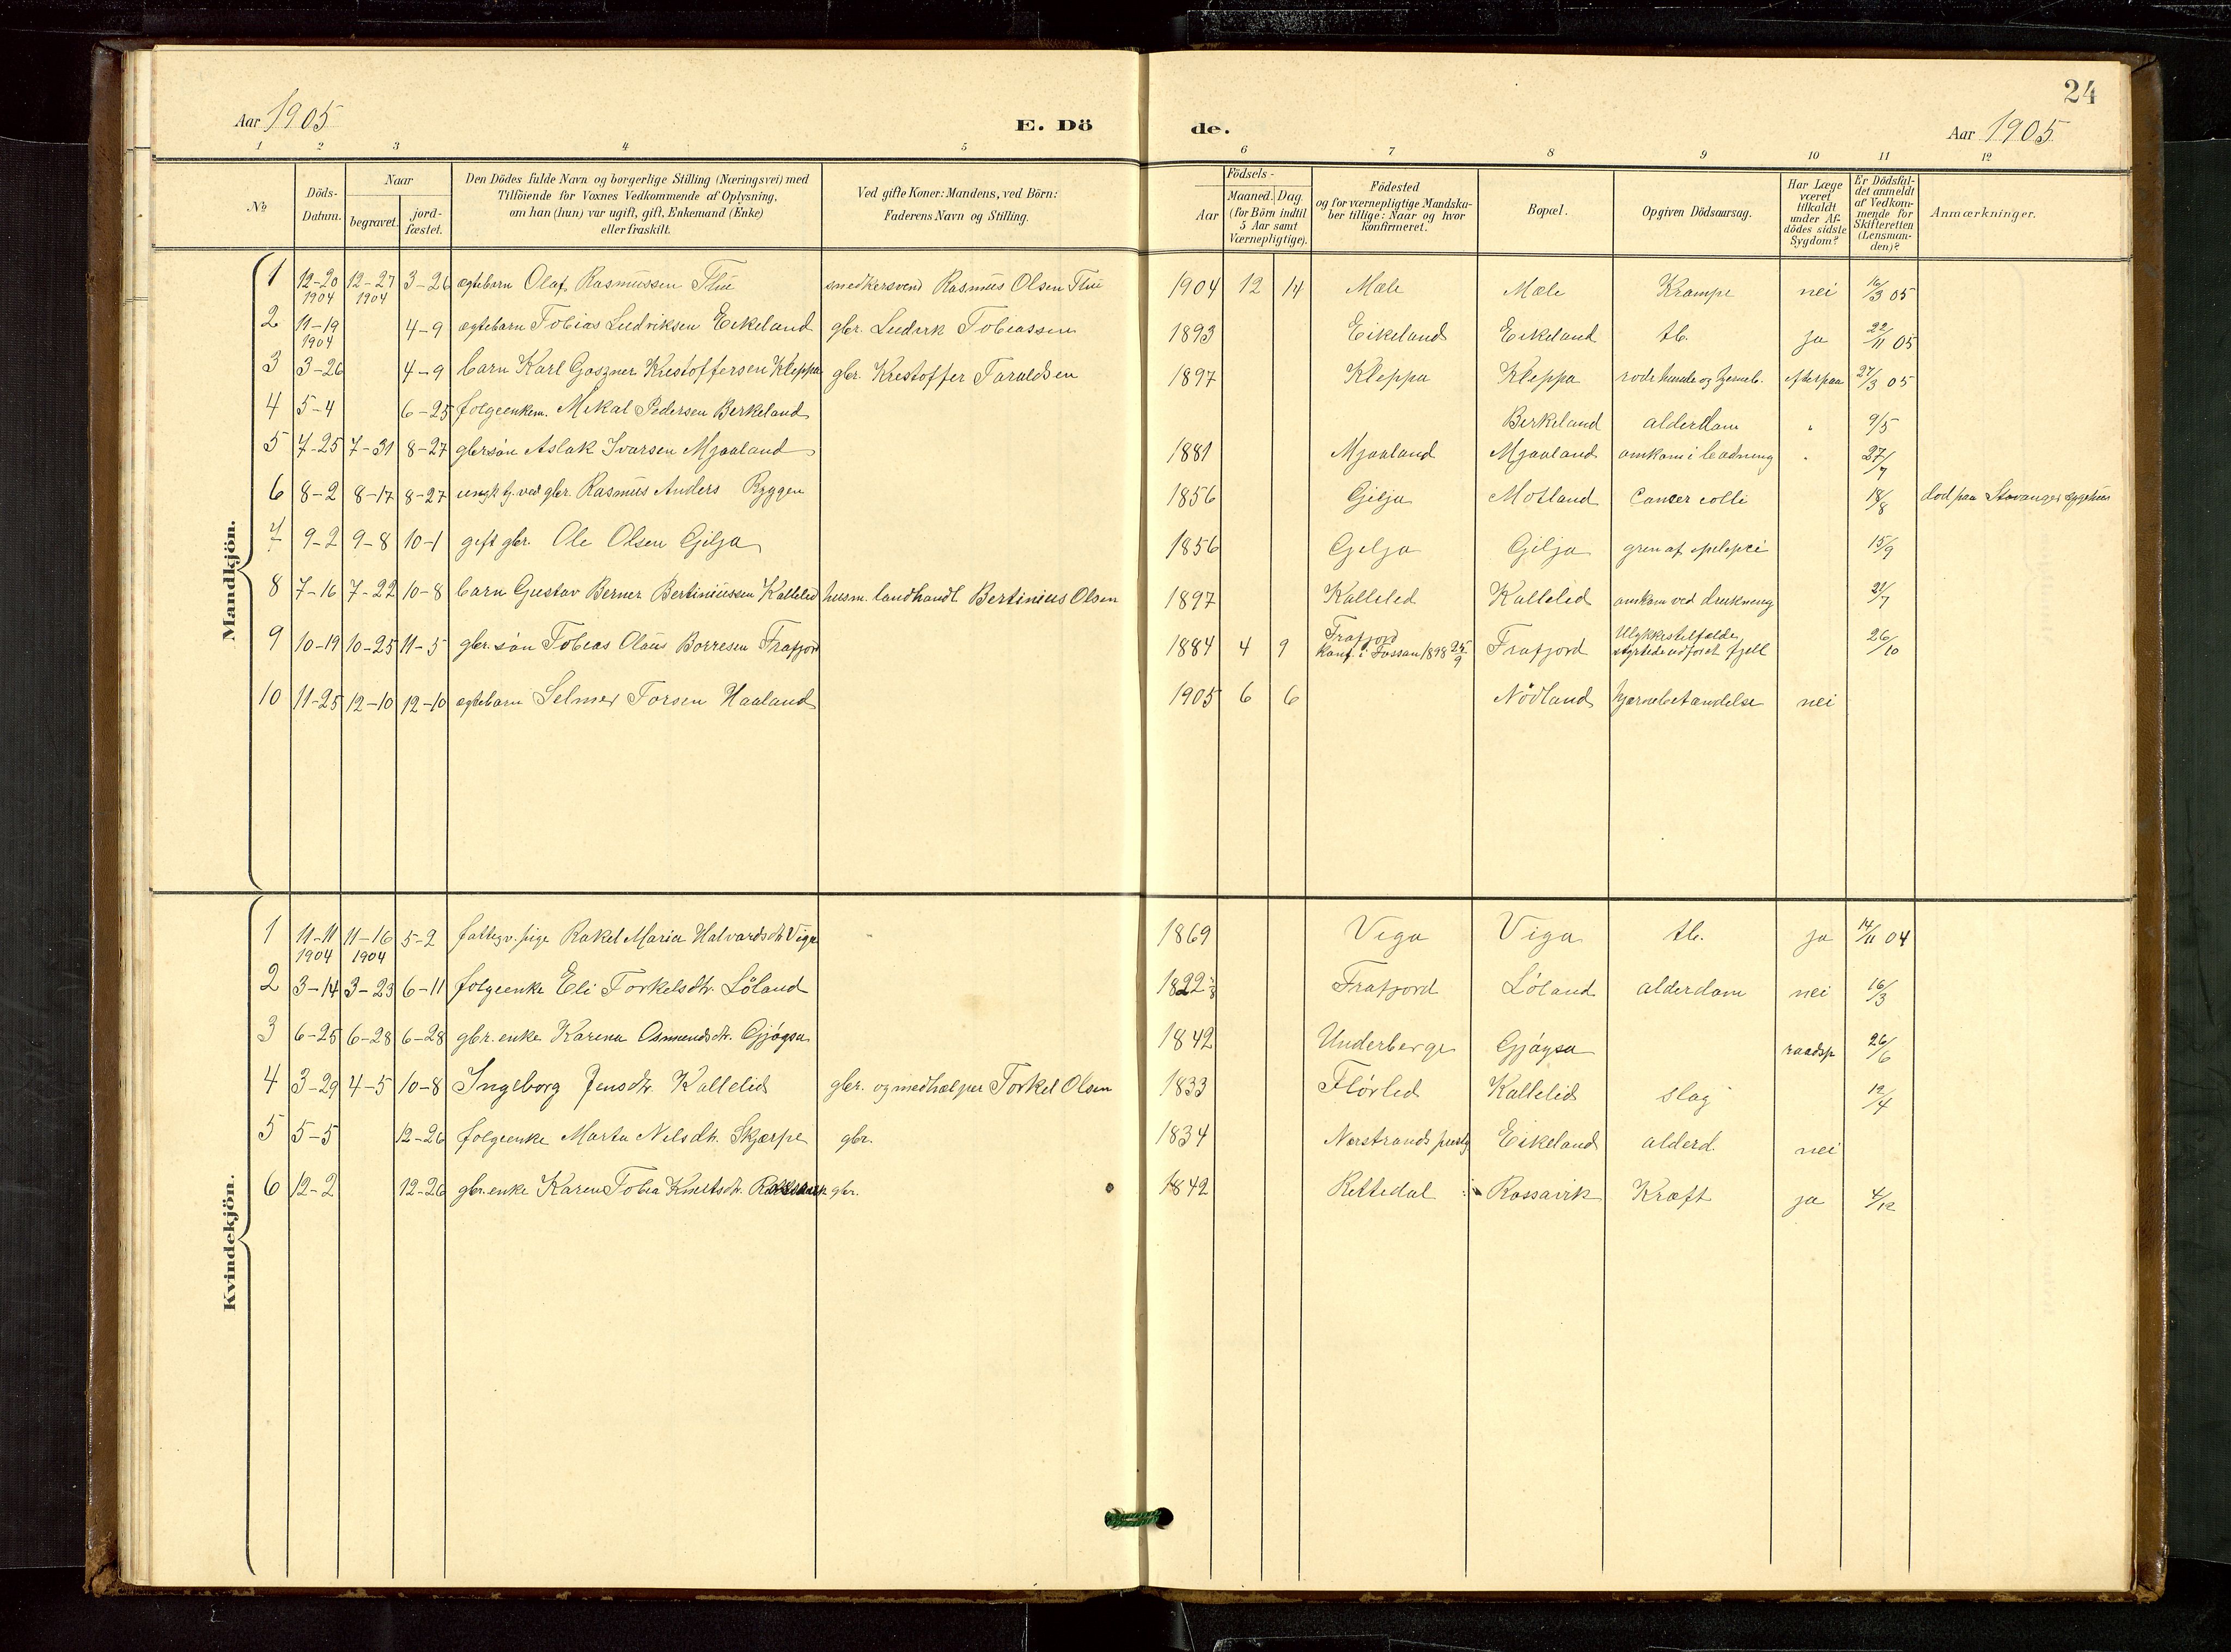 24
Aar 1905
E. Dö
de.
Aar 1905
1 2 3 4 5 6 7 8 9 10 11 12
No
Döds-Datum.
Naar
begravet.
jord-fæstet.
Den Dödes fulde Navn og borgerlige Stilling (Næringsvei) med
Tilföiende for Voxnes Vedkommende af Oplysning,
om han (hun) var ugift, gift, Enkemand (Enke)
eller fraskilt.
Ved gifte Koner: Mandens, ved Börn:
Faderens Navn og Stilling.
Födsels-
Aar
Maaned. Dag.
(for Börn indtil
5 Aar samt
Værnepligtige).
Födested
og for værnepligtige Mandska-
ber tillige: Naar og hvor
konfirmeret.
Bopæl.
Opgiven Dödsaarsag.
Har Læge
været
tilkaldt
under Af-
dödes sidste
Sygdom?
Er Dödsfal-
det anmeldt
af Vedkom-
mende for
Skifteretten
(Lensman-
den)?
Anmærkninger.
Mandkjön.
1 12-20 1904 12-27 1904 3-26 ægtebarn Olaf Rasmussen Flue smedkersvend Rasmus Olsen Flue 1904 12 14 Mæle Mæle Krampe nei 16/3 05
2 11-19 1904 4-9 ægtebarn Tobias Ludviksen Eikeland gbr. Ludvik Tobiassen 1893 Eikeland Eikeland tb. ja 22/11 05
3 3-26 4-9 barn Karl Gaszner Kristoffersen Kleppa gbr. Kristoffer Taraldsen 1897 Kleppa Kleppa røde hunde og hjerneb. efterpaa 27/3 05
4 5-4 6-25 folgeenkem. Mikal Pedersen Berkeland Birkeland alderdam " 9/5
5 7-25 7-31 8-27 gbrsøn Aslak Ivarsen Mjaaland 1881 Mjaaland Mjaaland omkom i badning " 27/7
6 8-2 8-17 8-27 ungk tj. ved gbr. Rasmus Anders Ryggen 1856 Gilja Motland Cancer colli 18/8 død paa Stavanger sygehus
7 9-2 9-8 10-1 gift gbr. Ole Olsen Gilja 1856 Gilja Gilja gren af epilepsi 15/9
8 7-16 7-22 10-8 barn Gustav Berner Bertiniussen Kallelid husm. landhandl Bertinius Olsen 1897 Kallelid Kallelid omkom ved drukning 21/7
9 10-19 10-25 11-5 gbr. søn Tobias Olaus Børresen Frafjord 1884 4 9 Frafjord konf. i Fossan 1898 25/9 Frafjord Ulykkestilfælde, styrtede udfor et fjell 26/10
10 11-25 12-10 12-10 ægtebarn Selmer Torsen Haaland 1905 6 6 Nödland hjernebetændelse nei
Kvindekjön.
1 11-11 1904 11-16 1904 5-2 fattigv. pige Rakel Maria Halvardsdtr Viga 1869 Viga Viga tb. ja 14/11 04
2 3-14 3-23 6-11 folgeenke Eli Torkelsdtr. Löland 1822 Frafjord Löland alderdam nei 16/3
3 6-25 6-28 6-28 gbr. enke Karena Osmundsdtr. Gjøysa 1842 Underberge Gjøysa raadsp 26/6
4 3-29 4-5 10-8 Ingeborg Jensdtr. Kallelid gbr. og medhælper Torkel Olsen 1833 Flörled Kallelid slag 12/4
5 5-5 12-26 folgeenke Marta Nilsdtr. Skjærpe gbr. 1834 Nerstrands prestg Eikeland alderd. nei
6 12-2 12-26 gbr. enke Karen Tobia Knutsdtr. gbr. 1842 Rettedal Rossavik Kræft ja 4/12